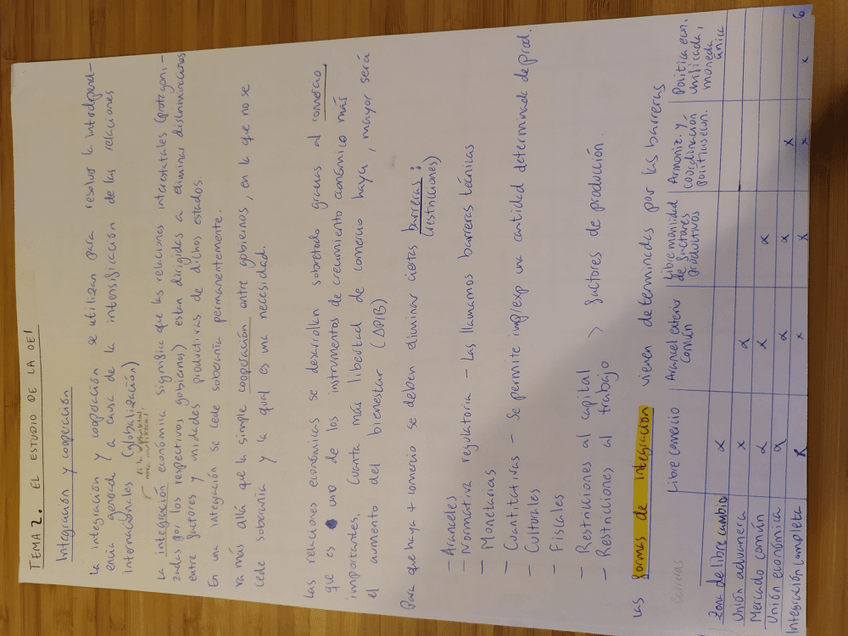 TEMA 2. EL ESTUDIO DE LA OEI
Integración y cooperación
La integración y cooperación se utilizan para resolver la interdepend-
encia generada a causa de la intensificación de las relaciones
internacionales (globalización)
La integración económica significa que las relaciones interestatales (protagoni-
zadas por los respectivos gobiernos) están dirigidas a eliminar discriminaciones
entre factores y unidades productivas de dichos estados.
En una integración se cede soberanía permanentemente.
va más allá que la simple cooperación entre gobiernos, en la que no se
cede soberanía y la cual es una necesidad.
Las relaciones económicas se desarrollan sobretodo gracias al comercio,
que es uno de los instrumentos de crecimiento económico más
importantes. Cuanta más libertad de comercio haya, mayor será
el aumento del bienestar (ΔPIB)
Para que haya + comercio se deben eliminar ciertas barreras:
(restricciones)
— Aranceles
— Normativa regulatoria — Las llamamos barreras técnicas
— Monetarias
— Cuantitativas — Se permite imp/exp una cantidad determinada de prod.
— Culturales
— Fiscales
— Restricciones al capital
— Restricciones al trabajo > factores de producción
Las formas de integración vienen determinadas por las barreras
Barreras Libre comercio Arancel exterior común Libre movilidad de factores productivos Armoniz. y coordinación políticas econ. Política econ. unificada, moneda única
Zona de libre cambio x
Unión aduanera x x
Mercado común x x x
Unión económica x x x x
Integración completa x x x x x
6